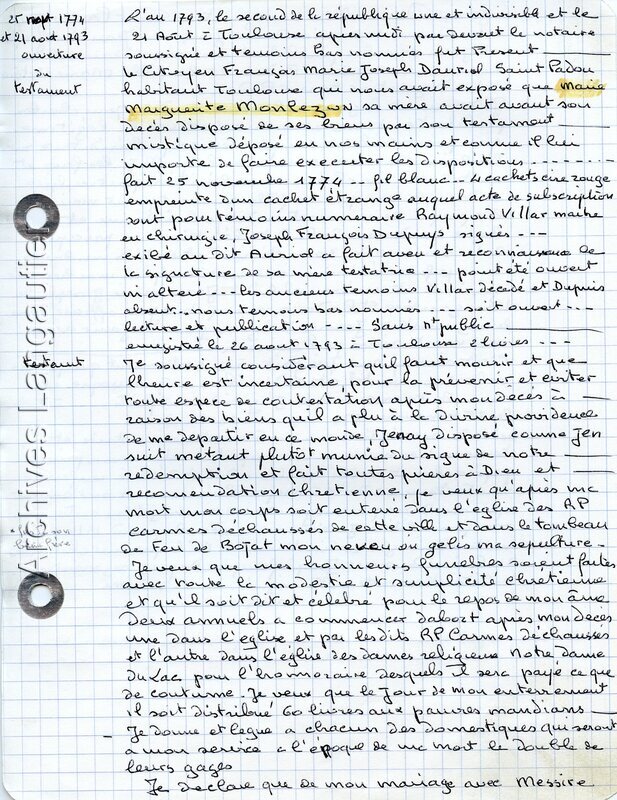 25 nov 1774
et 21 aout 1793
ouverture
du
testament
L'an 1793, le second de la république une et indivisible et le
21 Août à Toulouse après midi par devant le notaire
soussigné et temoins bas nommés fut Present
le Citoyen François Marie Joseph Dauriol Saint Padou
habitant Toulouse qui nous avait exposé que Marie
Marguerite Monlezun sa mère avait avant son
decès disposé de ses biens par son testament
mistique déposé en nos mains et comme il lui
importe de faire executer les dispositions - - - - - -
fait 25 novembre 1774 -- fil blanc -- 4 cachets cire rouge
empreinte d'un cachet étrange auquel acte de subscription
sont pour temoins numeraire Raymond Villar maitre
en chirurgie, Joseph François Dupuys signés - - -
exibé au dit Auriol a fait aveu et reconnaissance de
la signature de sa mère testatrice - - - point été ouvert
ni alteré - - - les anciens temoins Villar décédé et Dupuis
absent.. nous temoins bas nommés - - - soit ouvert - - -
lecture et publication - - - - Sans nt public
enregistré le 26 aout 1793 à Toulouse 2 livres - - -
testament
Je soussigné considérant qu'il faut mourir et que
l'heure est incertaine, pour la prévenir et eviter
toute espece de contestation après mon deces à
raison des biens qu'il a plu à la Divine providence
de me departir en ce monde, Jenay disposé comme Jen
suit metant plutôt munie du signe de notre
redemption et fait toutes prières à Dieu et
recomendation chretienne, je veux qu'après ma
mort mon corps soit enterré dans l'eglise des RP
Carmes déchaussés de cette ville et dans le tombeau
de Feu de Bojat mon neveu ou gelis ma sepulture -
son
beau frère
Je veux que mes honneurs funèbres soient faites
avec toute la modestie et simplicité chretienne
et qu'il soit dit et célébré pour le repos de mon âme
Deux annuels a commencer dabort après mon decès
une dans l'eglise et par les dits RP Carmes déchaussés
et l'autre dans l'église des dames religieux Notre Dame
du Lac pour l'honnoraire desquels il sera payé ce que
de coutume. Je veux que le Jour de mon enterrement
il soit distribué 60 livres aux pauvres mandians
Je donne et legue a chacun des domestiques qui seront
a mon service a l'époque de ma mort le double de
leurs gages
Je declare que de mon mariage avec Messire
Archives Langautier